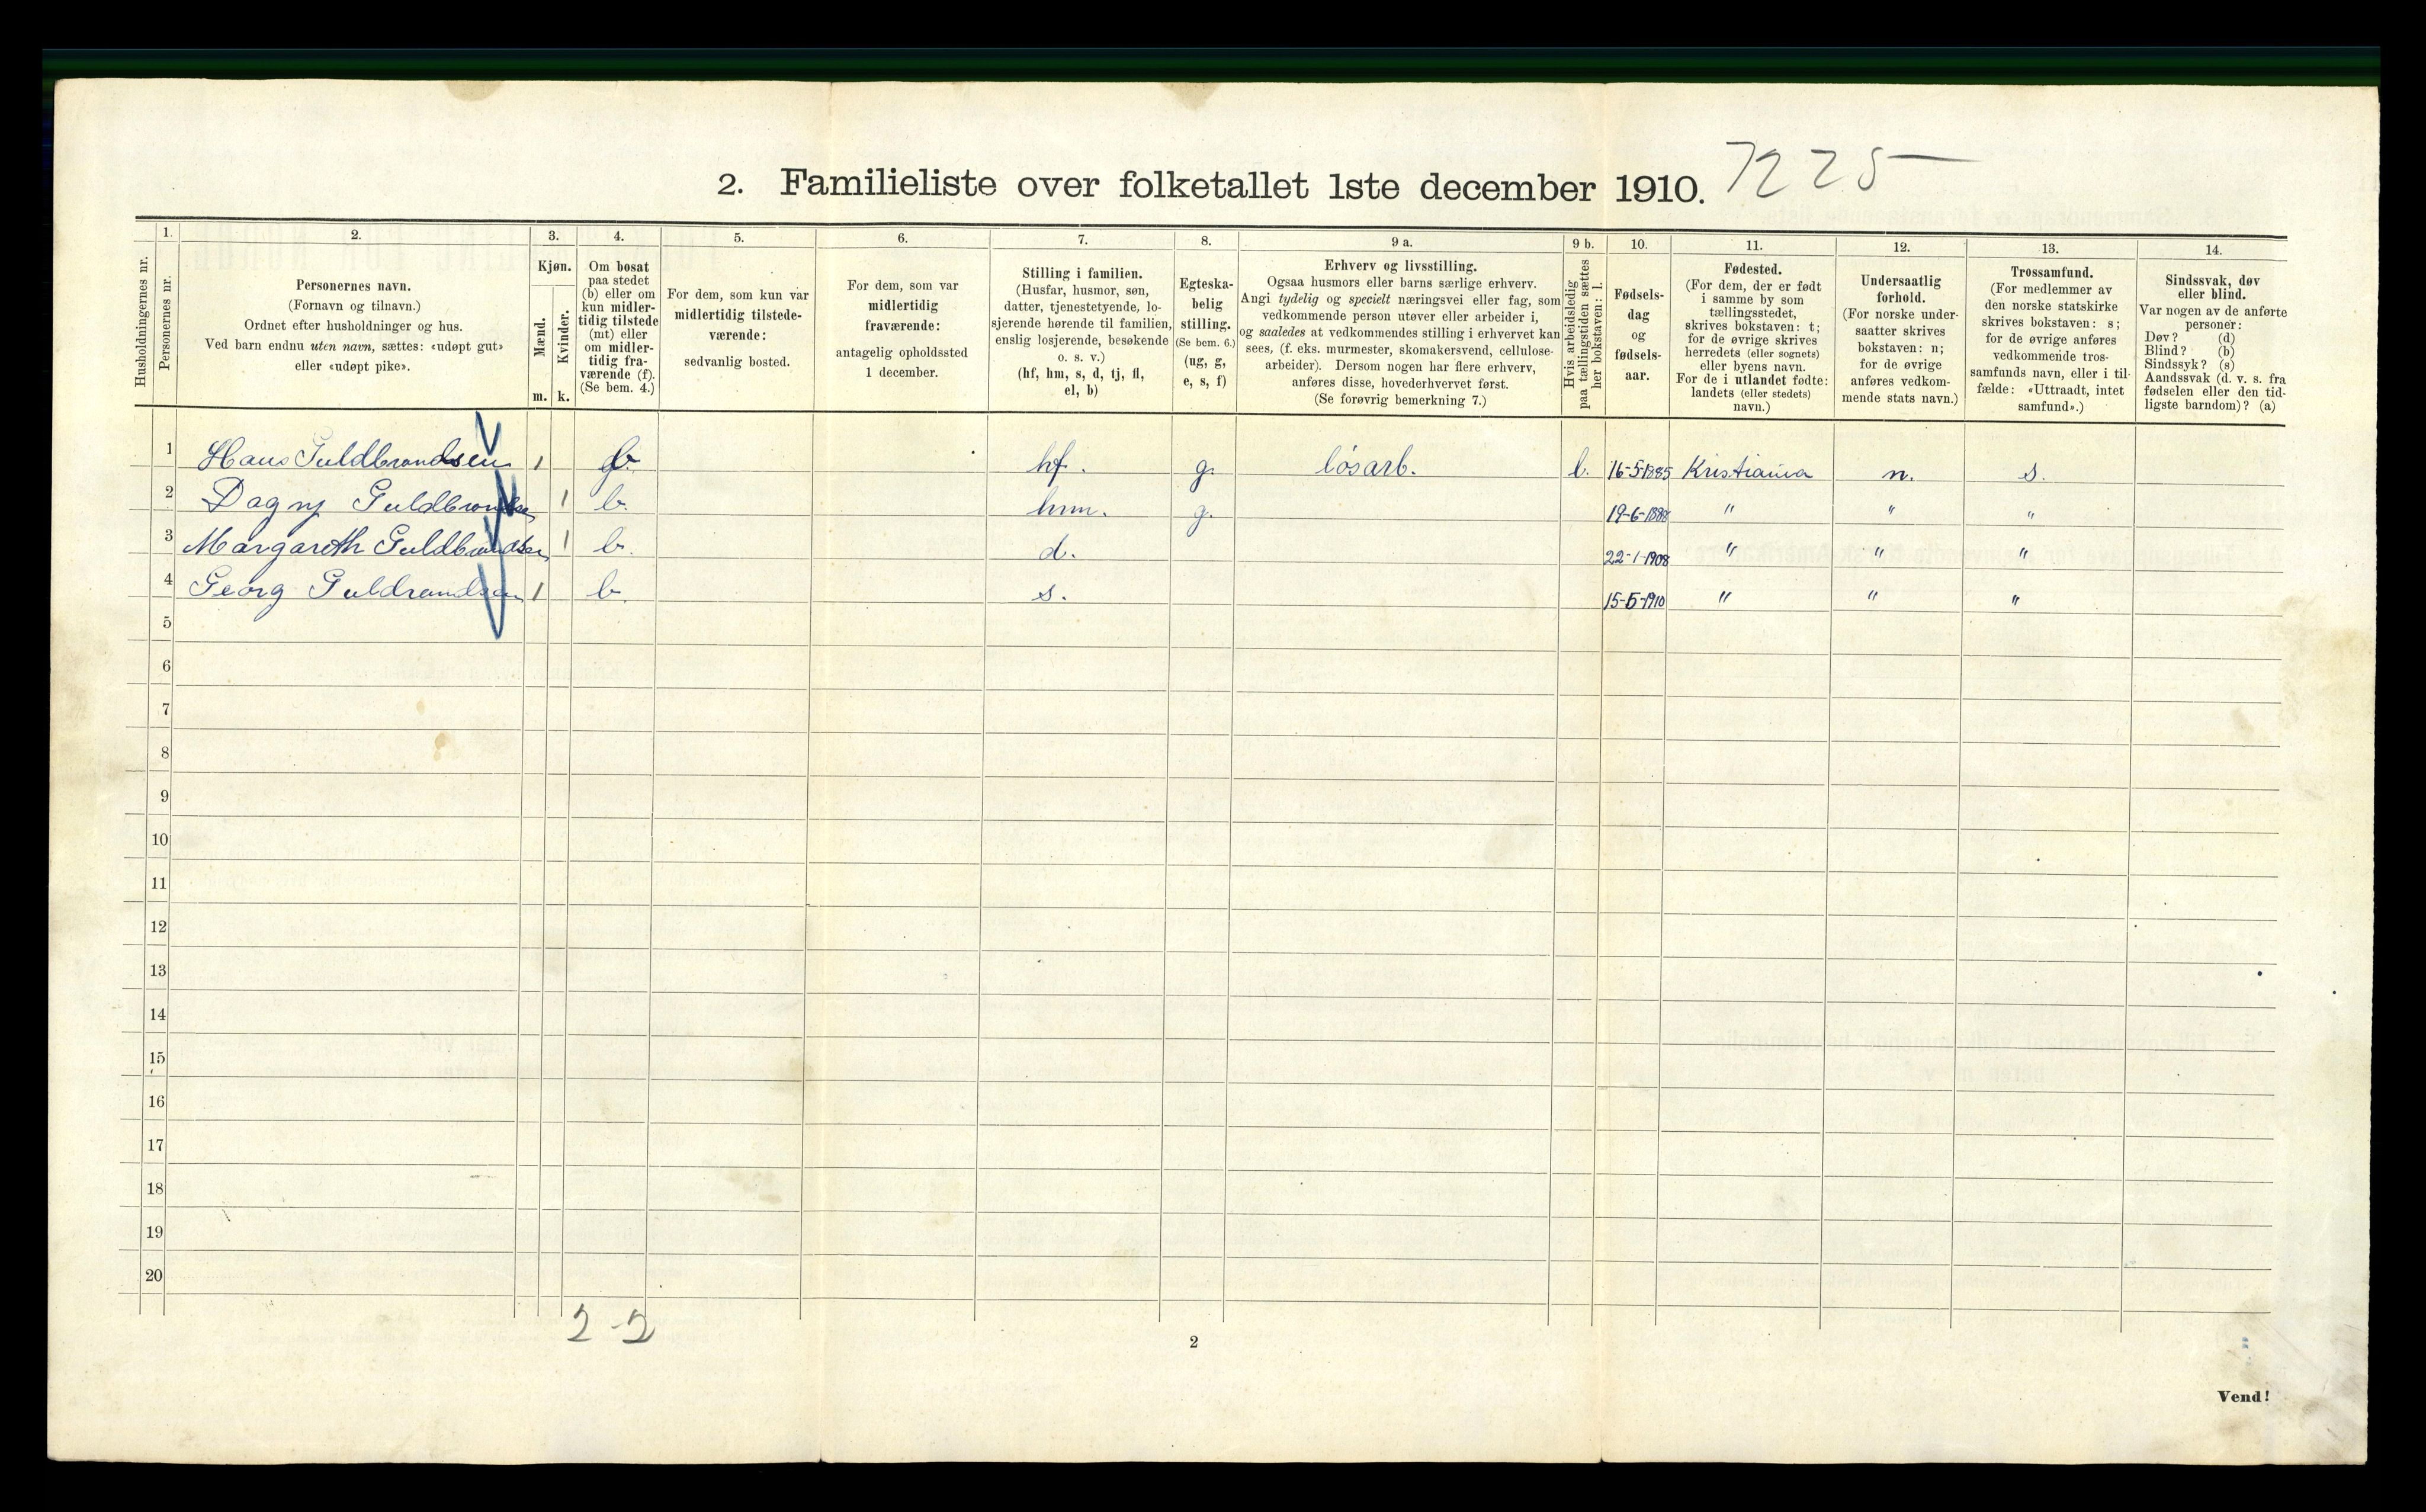 2. Familieliste over folketallet 1ste december 1910. 7225
Husholdningernes nr.
1. Personernes nr.
2. Personernes navn.
(Fornavn og tilnavn.)
Ordnet efter husholdninger og hus.
Ved barn endnu uten navn, sættes: «udøpt gut»
eller «udøpt pike».
3. Kjøn.
Mænd. m.
Kvinder. k.
4. Om bosat
paa stedet
(b) eller om
kun midler-
tidig tilstede
(mt) eller
om midler-
tidig fra-
værende (f).
(Se bem. 4.)
5. For dem, som kun var
midlertidig tilstede-
værende:
sedvanlig bosted.
6. For dem, som var
midlertidig
fraværende:
antagelig opholdssted
1 december.
7. Stilling i familien.
(Husfar, husmor, søn,
datter, tjenestetyende, lo-
sjerende hørende til familien,
enslig losjerende, besøkende
o. s. v.)
(hf, hm, s, d, tj, fl,
el, b)
8. Egteska-
belig
stilling.
(Se bem. 6.)
(ug, g,
e, s, f)
9 a. Erhverv og livsstilling.
Ogsaa husmors eller barns særlige erhverv.
Angi tydelig og specielt næringsvei eller fag, som
vedkommende person utøver eller arbeider i,
og saaledes at vedkommendes stilling i erhvervet kan
sees, (f. eks. murmester, skomakersvend, cellulose-
arbeider). Dersom nogen har flere erhverv,
anføres disse, hovederhvervet først.
(Se forøvrig bemerkning 7.)
9 b. Hvis arbeidsledig
paa tællingstiden sættes
her bokstaven: l.
10. Fødsels-
dag
og
fødsels-
aar.
11. Fødested.
(For dem, der er født
i samme by som
tællingsstedet,
skrives bokstaven: t;
for de øvrige skrives
herredets (eller sognets)
eller byens navn.
For de i utlandet fødte:
landets (eller stedets)
navn.)
12. Undersaatlig
forhold.
(For norske under-
saatter skrives
bokstaven: n;
for de øvrige
anføres vedkom-
mende stats navn.)
13. Trossamfund.
(For medlemmer av
den norske statskirke
skrives bokstaven: s;
for de øvrige anføres
vedkommende tros-
samfunds navn, eller i til-
fælde: «Uttraadt, intet
samfund».)
14. Sindssvak, døv
eller blind.
Var nogen av de anførte
personer:
Døv? (d)
Blind? (b)
Sindssyk? (s)
Aandssvak (d. v. s. fra
fødselen eller den tid-
ligste barndom)? (a)
1 Hans Guldbrandsen 1 b. hf. g. løsarb. l. 16-5-1885 Kristiania n. s.
2 Dagny Guldbrandsen 1 b. hm. g. 19-6-1888 " " "
3 Margareth Guldbrandsen 1 b. d. 22-1-1908 " " "
4 Georg Guldrandsen 1 b. s. 15-5-1910 " " "
5
6
7
8
9
10
11
12
13
14
15
16
17
18
19
20
2-2
2
Vend!